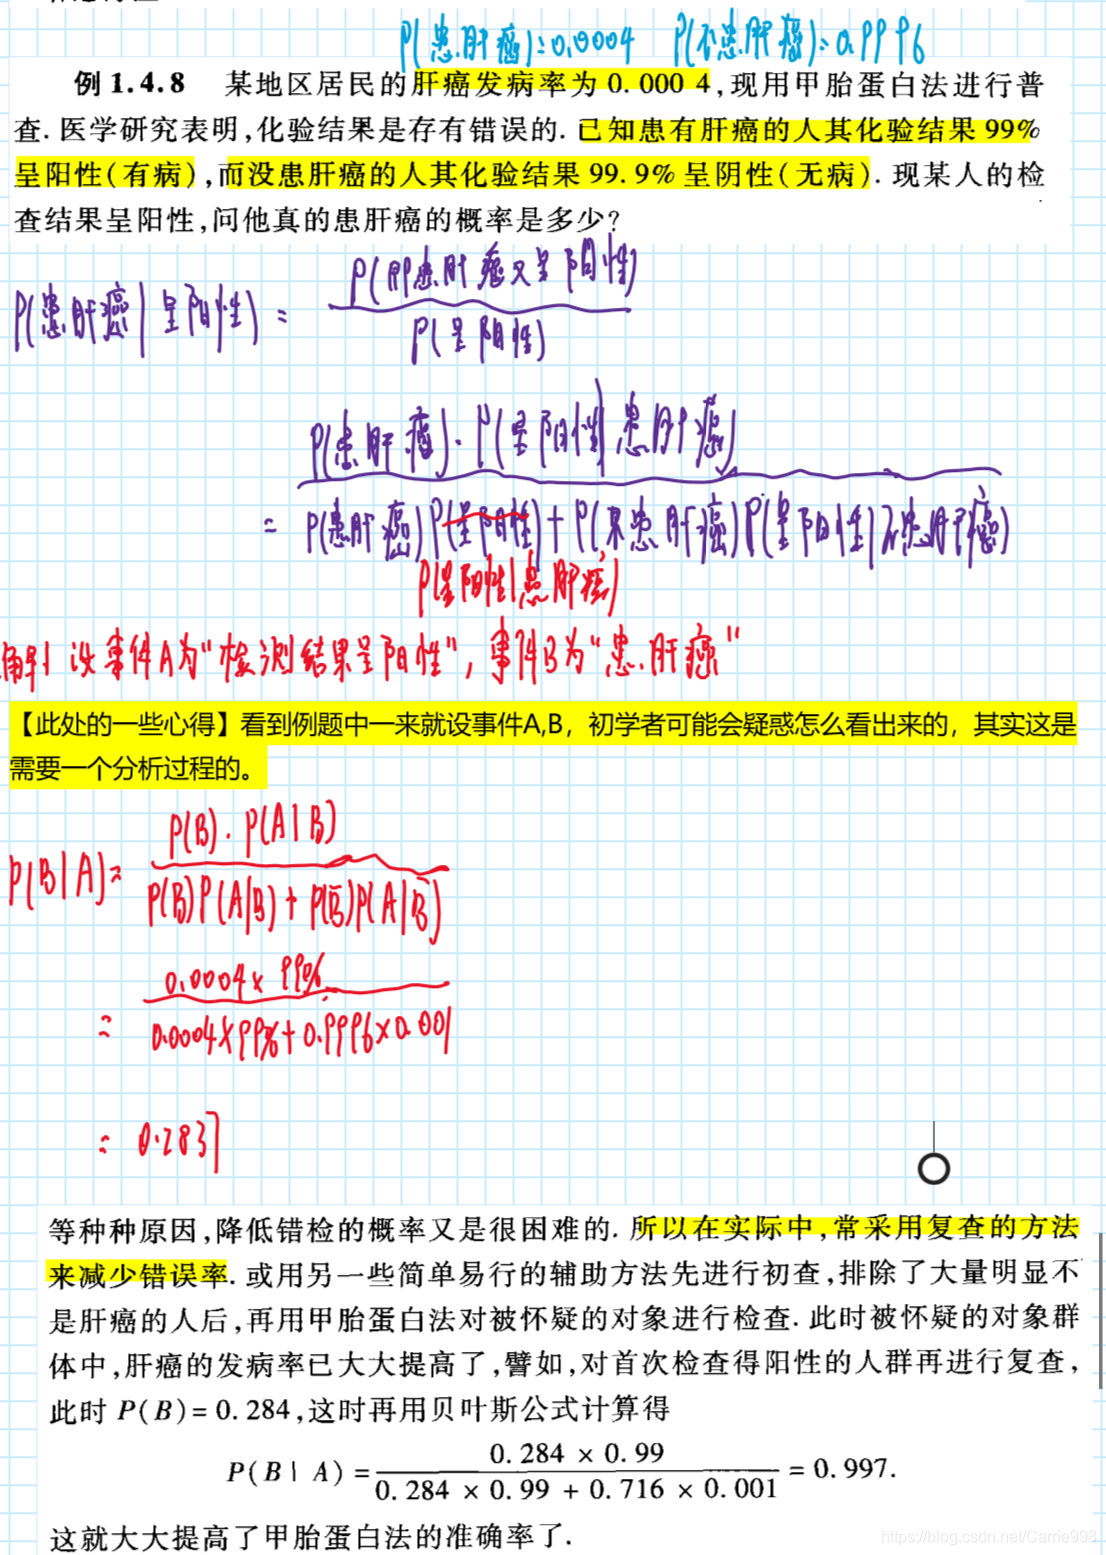 P(患肝癌)=0.0004 P(不患肝癌)=0.9996
例 1.4.8 某地区居民的肝癌发病率为 0.000 4,现用甲胎蛋白法进行普
查. 医学研究表明,化验结果是存有错误的. 已知患有肝癌的人其化验结果 99%
呈阳性(有病),而没患肝癌的人其化验结果 99.9% 呈阴性(无病). 现某人的检
查结果呈阳性,问他真的患肝癌的概率是多少?
P(即患肝癌又呈阳性)
P(患肝癌|呈阳性) =
P(呈阳性)
P(患肝癌)·P(呈阳性|患肝癌)
= P(患肝癌)P(呈阳性)+P(不患肝癌)P(呈阳性|不患肝癌)
P(呈阳性|患肝癌)
解: 设事件A为"检测结果呈阳性", 事件B为"患肝癌"
【此处的一些心得】看到例题中一来就设事件A,B，初学者可能会疑惑怎么看出来的，其实这是
需要一个分析过程的。
P(B)·P(A|B)
P(B|A)=
P(B)P(A|B)+P(B̄)P(A|B̄)
0.0004×99%
=
0.0004×99%+0.9996×0.001
= 0.2837
等种种原因,降低错检的概率又是很困难的. 所以在实际中,常采用复查的方法
来减少错误率. 或用另一些简单易行的辅助方法先进行初查,排除了大量明显不
是肝癌的人后,再用甲胎蛋白法对被怀疑的对象进行检查. 此时被怀疑的对象群
体中,肝癌的发病率已大大提高了,譬如,对首次检查得阳性的人群再进行复查,
此时 P(B)= 0.284,这时再用贝叶斯公式计算得
0.284 × 0.99
P(B| A) = = 0.997.
0.284 × 0.99 + 0.716 × 0.001
这就大大提高了甲胎蛋白法的准确率了.
https://blog.csdn.net/Carrie998